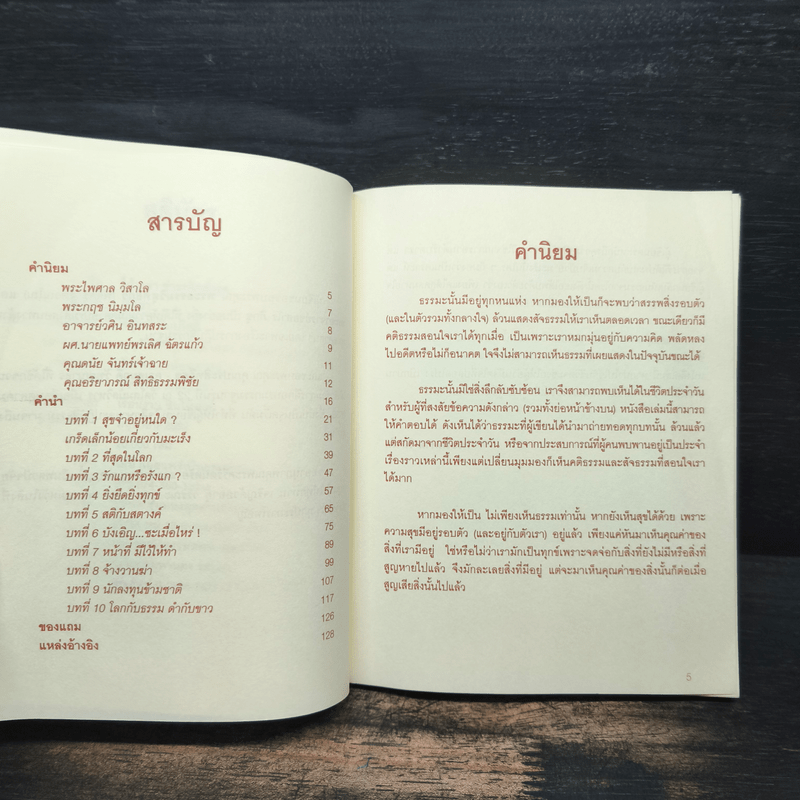 สารบัญ
คำนิยม
พระไพศาล วิสาโล 5
พระกฤช นิมฺมโล 7
อาจารย์วศิน อินทสระ 8
ผศ.นายแพทย์พรเลิศ ฉัตรแก้ว 9
คุณดนัย จันทร์เจ้าฉาย 11
คุณอริยาภรณ์ สิทธิธรรมพิชัย 12
คำนำ 16
บทที่ 1 สุขจำอยู่หนใด ? 21
เกร็ดเล็กน้อยเกี่ยวกับมะเร็ง 31
บทที่ 2 ที่สุดในโลก 39
บทที่ 3 รักแกหรือรังแก ? 47
บทที่ 4 ยิ่งยึดยิ่งทุกข์ 57
บทที่ 5 สติกับสตางค์ 65
บทที่ 6 บังเอิญ...ซะเมื่อไหร่ ! 75
บทที่ 7 หน้าที่ มีไว้ให้ทำ 89
บทที่ 8 จ้างวานฆ่า 99
บทที่ 9 นักลงทุนข้ามชาติ 107
บทที่ 10 โลกกับธรรม ดำกับขาว 117
ของแถม 126
แหล่งอ้างอิง 128
คำนิยม
ธรรมะนั้นมีอยู่ทุกหนแห่ง หากมองให้เป็นก็จะพบว่าสรรพสิ่งรอบตัว
(และในตัวรวมทั้งกลางใจ) ล้วนแสดงสัจธรรมให้เราเห็นตลอดเวลา ขณะเดียวก็มี
คติธรรมสอนใจเราได้ทุกเมื่อ เป็นเพราะเราหมกมุ่นอยู่กับความคิด พลัดหลง
ไปอดีตหรือไม่ก็อนาคต ใจจึงไม่สามารถเห็นธรรมที่เผยแสดงในปัจจุบันขณะได้
ธรรมะนั้นมิใช่สิ่งลึกลับซับซ้อน เราจึงสามารถพบเห็นได้ในชีวิตประจำวัน
สำหรับผู้ที่สงสัยข้อความดังกล่าว (รวมทั้งย่อหน้าข้างบน) หนังสือเล่มนี้สามารถ
ให้คำตอบได้ ดังเห็นได้ว่าธรรมะที่ผู้เขียนได้นำมาถ่ายทอดทุกบทนั้น ล้วนแล้ว
แต่สกัดมาจากชีวิตประจำวัน หรือจากประสบการณ์ที่ผู้คนพบพานอยู่เป็นประจำ
เรื่องราวเหล่านี้เพียงแต่เปลี่ยนมุมมองก็เห็นคติธรรมและสัจธรรมที่สอนใจเรา
ได้มาก
หากมองให้เป็น ไม่เพียงเห็นธรรมเท่านั้น หากยังเห็นสุขได้ด้วย เพราะ
ความสุขมีอยู่รอบตัว (และอยู่กับตัวเรา) อยู่แล้ว เพียงแค่หันมาเห็นคุณค่าของ
สิ่งที่เรามีอยู่ ใช่หรือไม่ว่าเรามักเป็นทุกข์เพราะจดจ่อกับสิ่งที่ยังไม่มีหรือสิ่งที่
สูญหายไปแล้ว จึงมักละเลยสิ่งที่มีอยู่ แต่จะมาเห็นคุณค่าของสิ่งนั้นก็ต่อเมื่อ
สูญเสียสิ่งนั้นไปแล้ว
5